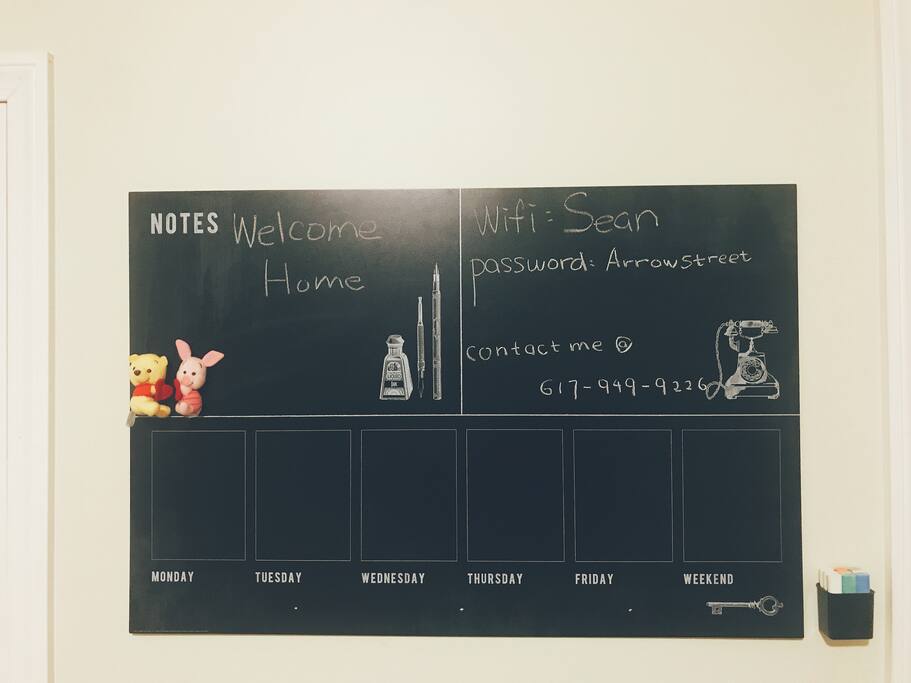 NOTES Welcome
Home
Wifi: Sean
password: Arrowstreet
contact me @
617-949-9226
MONDAY
TUESDAY
WEDNESDAY
THURSDAY
FRIDAY
WEEKEND